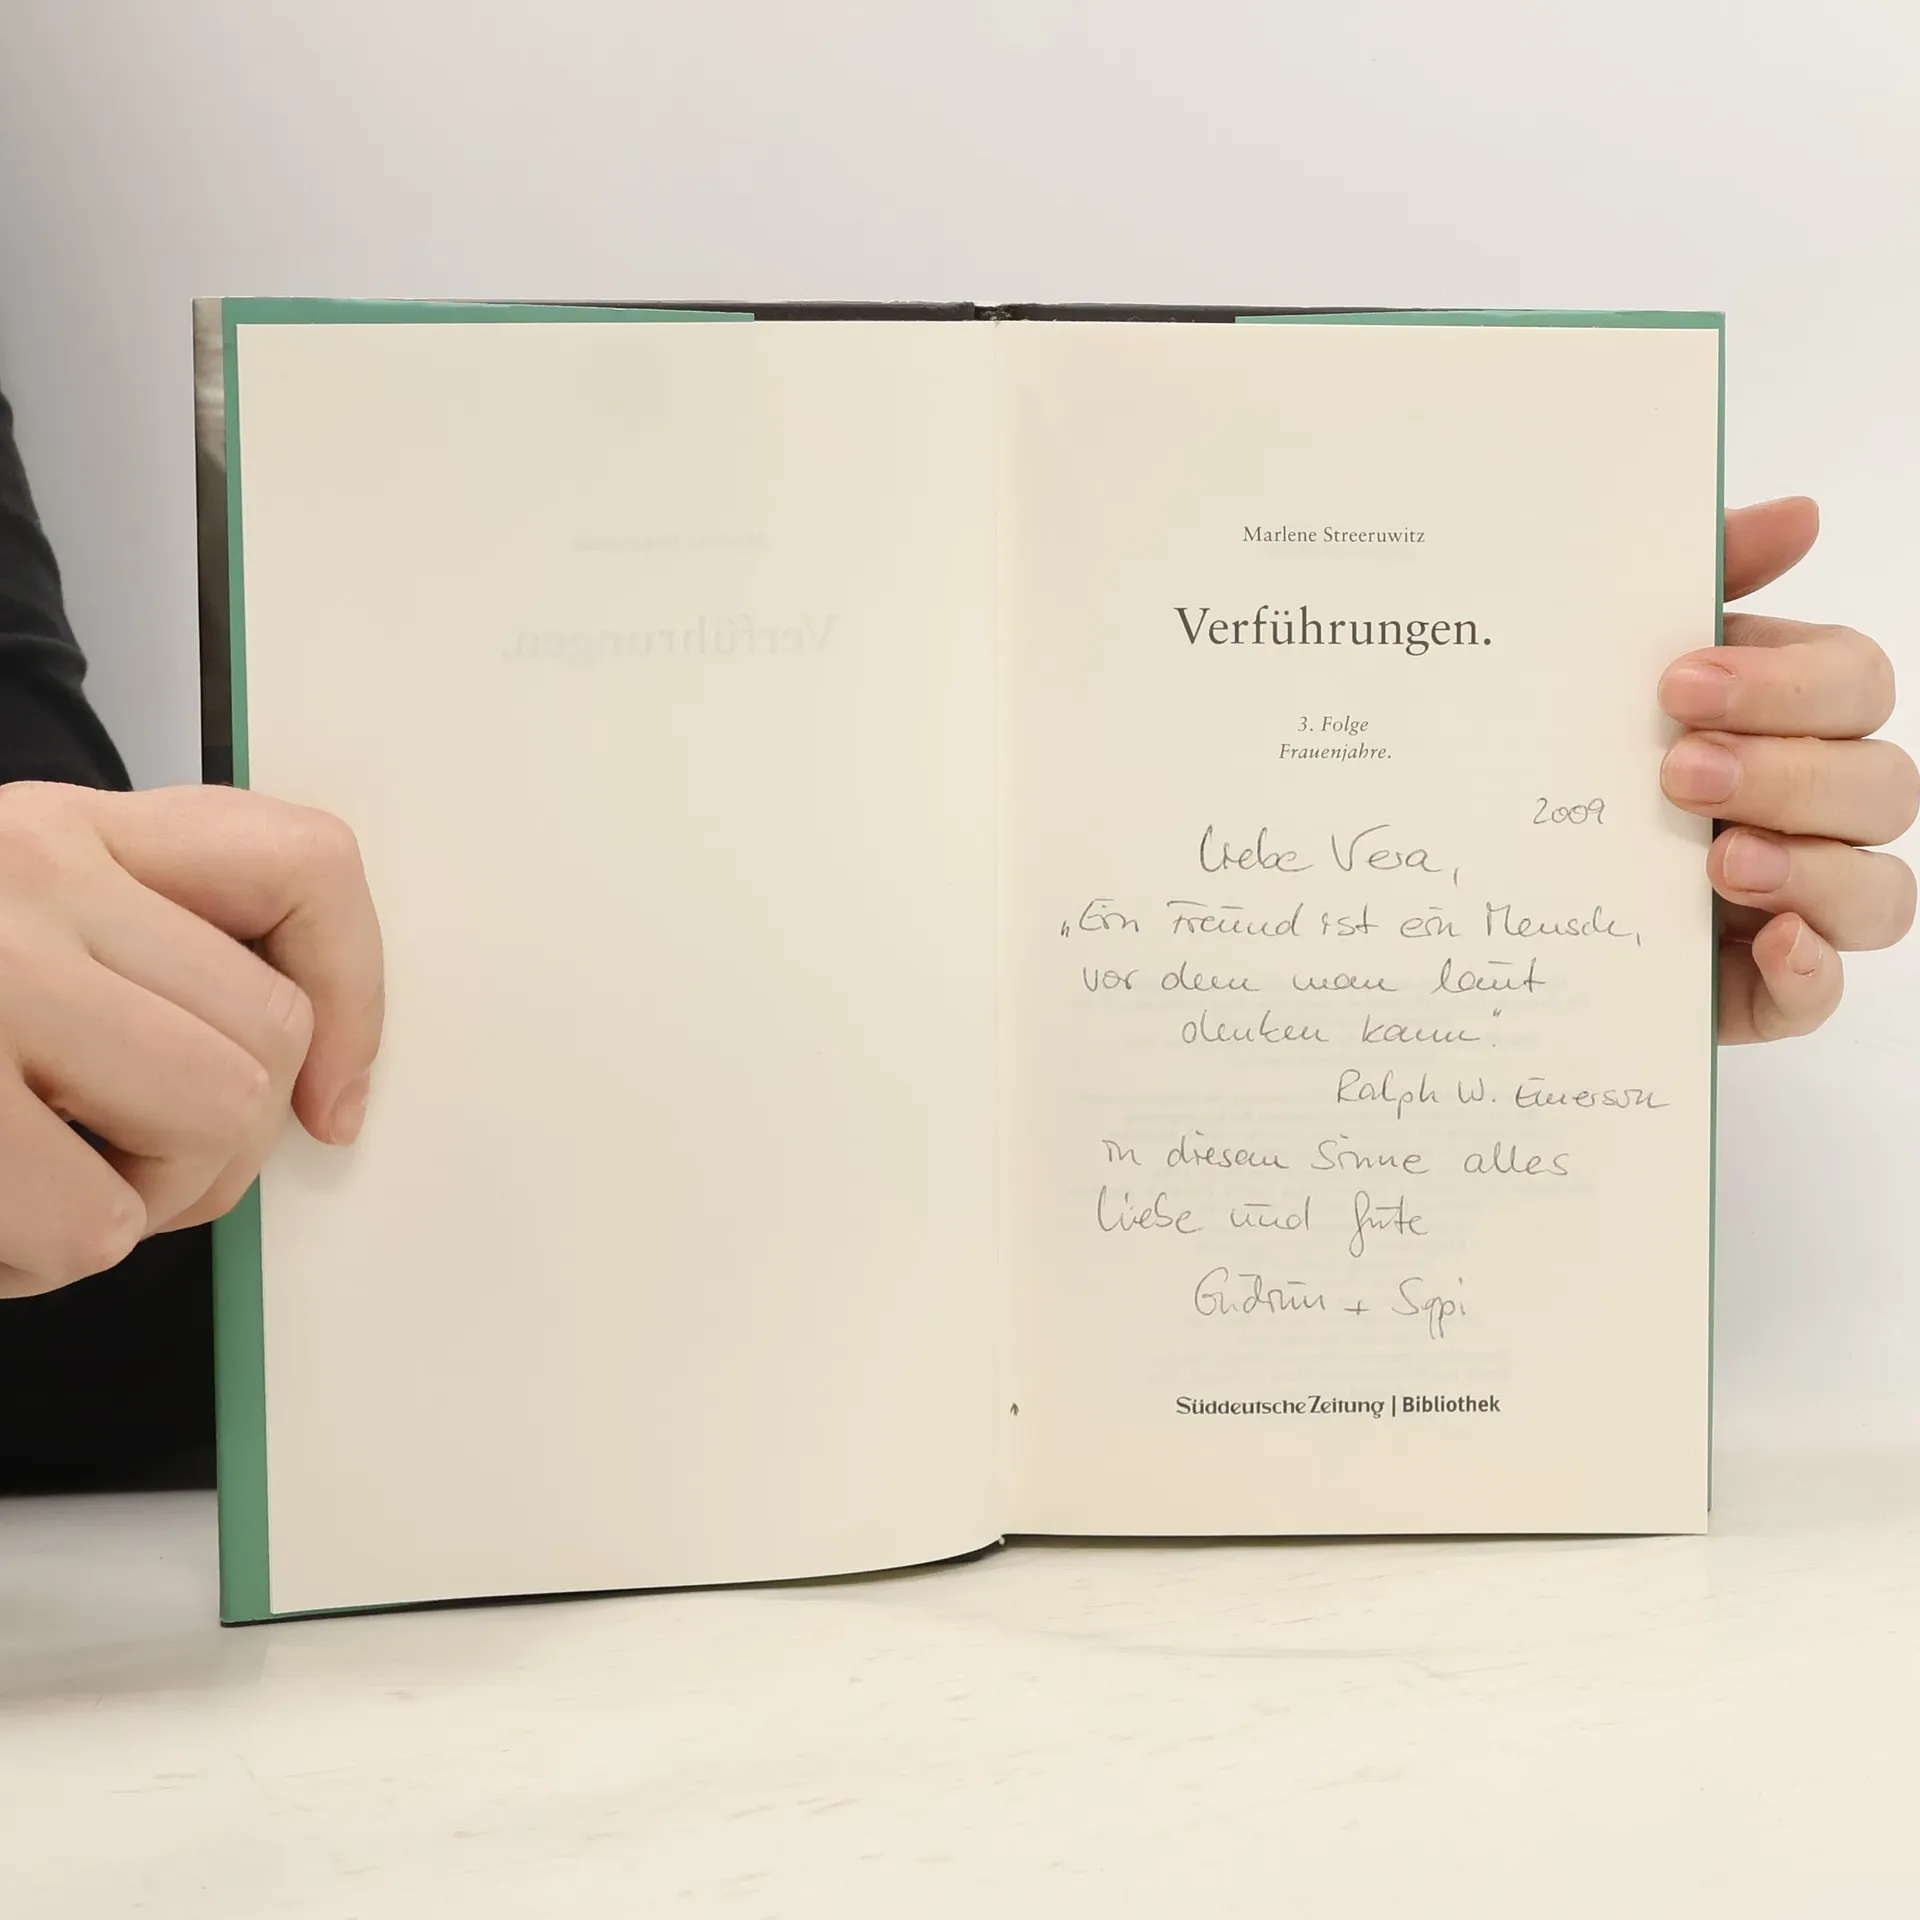 Marlene Streeruwitz
Verführungen.
3. Folge
Frauenjahre.
2009
Liebe Vera,
„Ein Freund ist ein Mensch,
vor dem man laut
denken kann“.
Ralph W. Emerson
in diesem Sinne alles
Liebe und Gute
Gudrun +
Süddeutsche Zeitung | Bibliothek